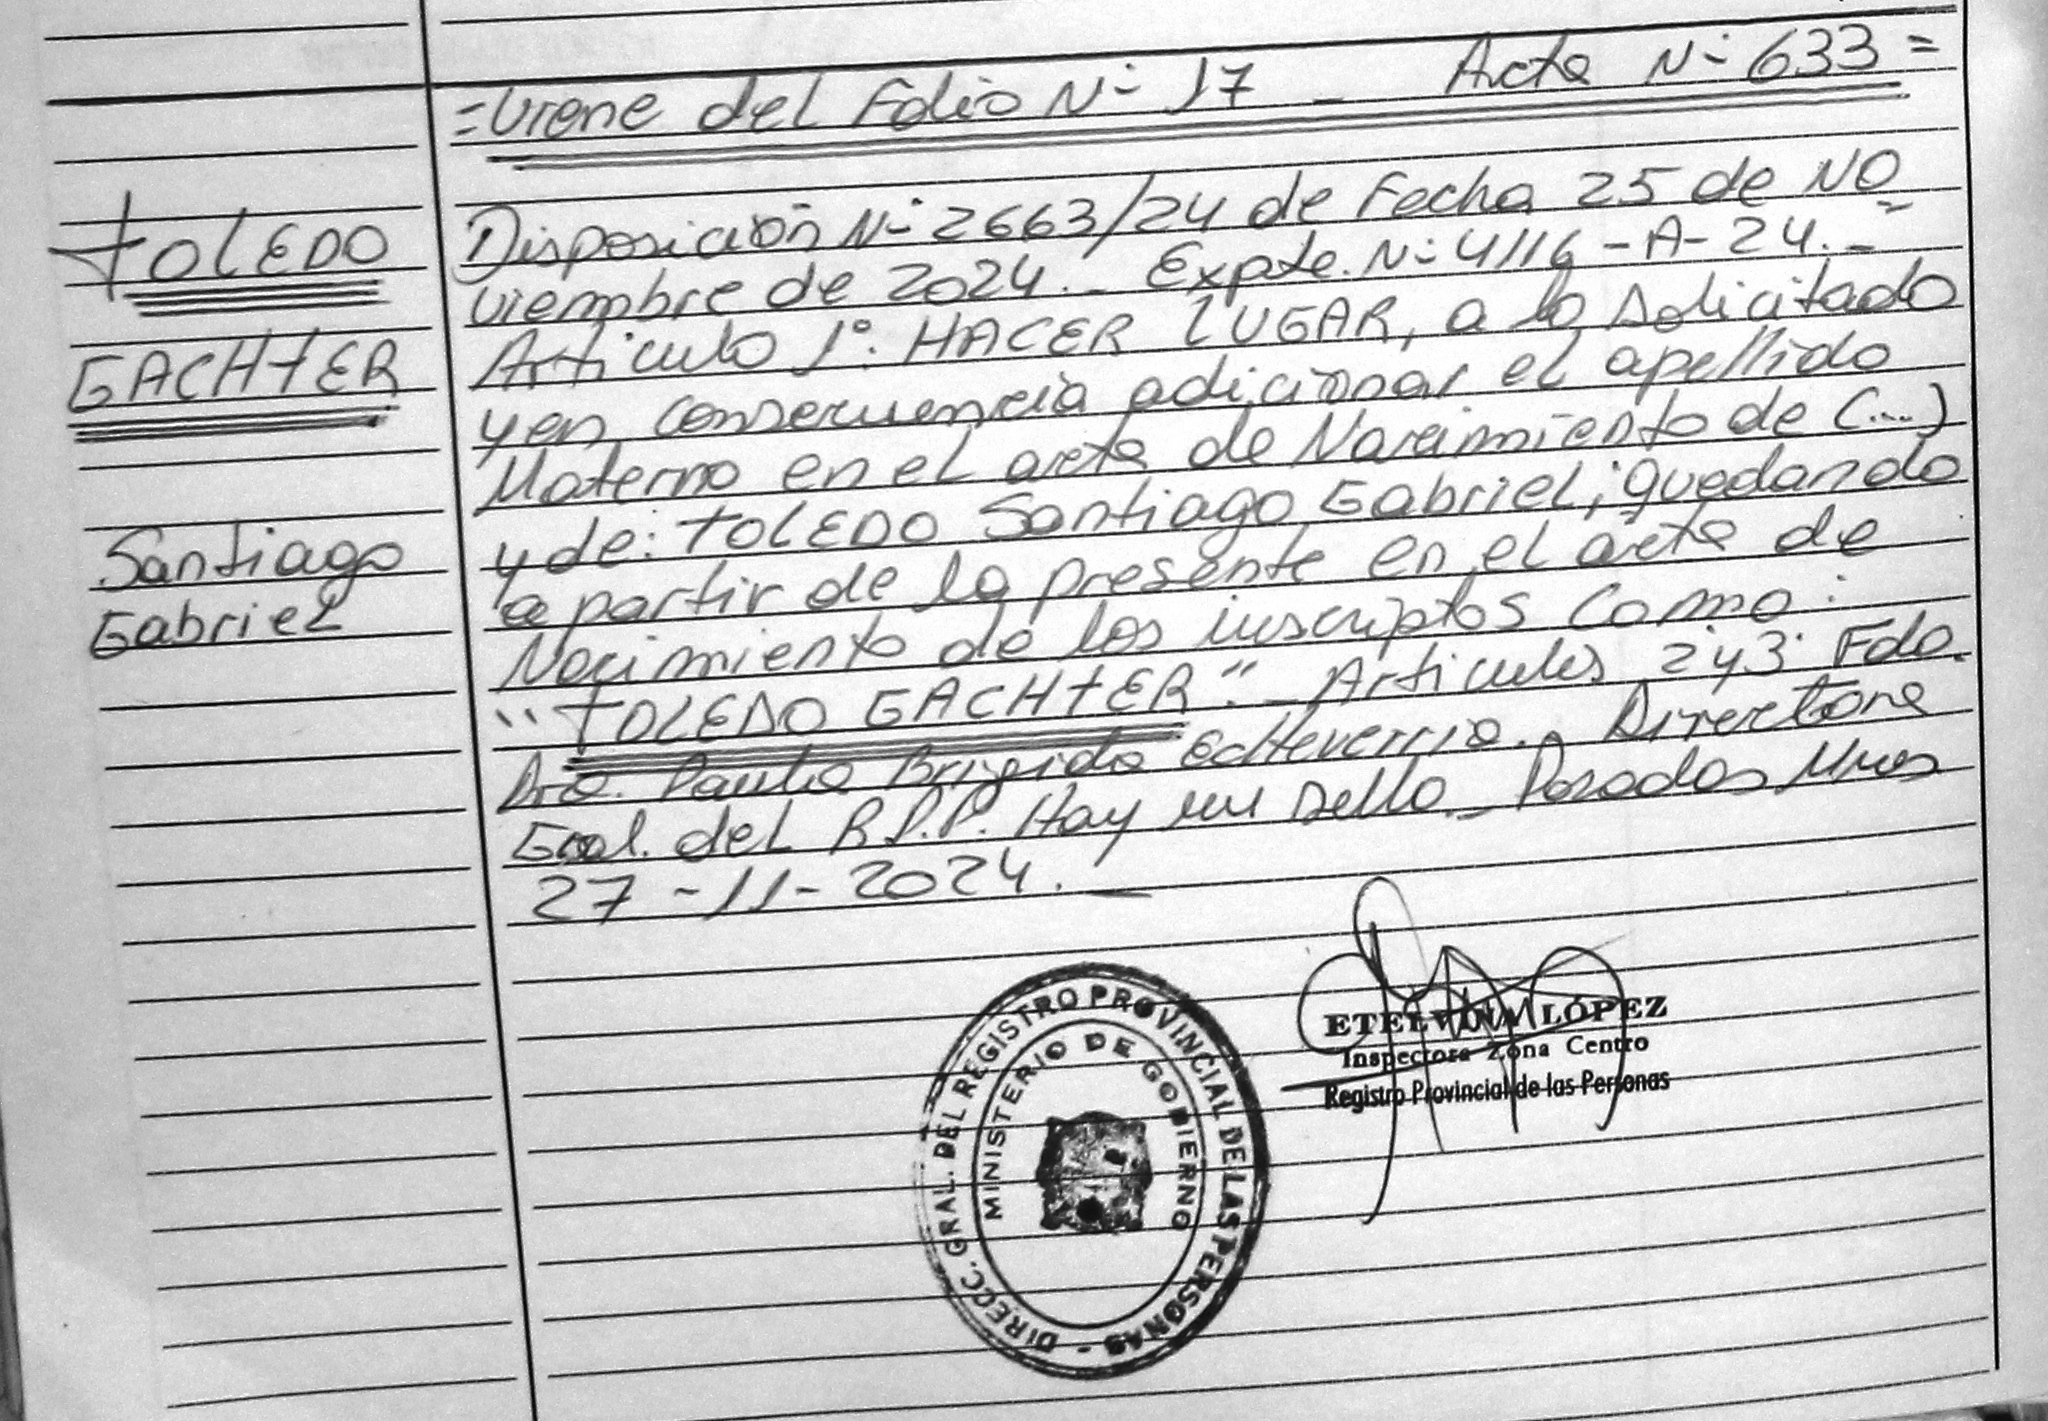 =Viene del Folio N- 17 - Acta N- 633=
TOLEDO
GACHTER
Santiago
Gabriel
Disposición N- 2663/24 de Fecha 25 de NO
viembre de 2024.- Expte. N- 4116-A-24.-
Articulo 1°: HACER LUGAR, a lo solicitado
y en consecuencia adicionar el apellido
Materno en el acta de Nacimiento de (...)
y de: TOLEDO Santiago Gabriel; quedando
a partir de la presente en el acta de
Nacimiento de los inscriptos Como:
"TOLEDO GACHTER".- Articules 2 y 3 Fdo.
Dra. Paula Brigida Echeverria. Directora
Gral. del R.P.P. Hay un sello.- Posadas Mnes
27-11-2024.-
ETELVINA LÓPEZ
Inspectora Zona Centro
Registro Provincial de las Personas
DIRECC. GRAL. DEL REGISTRO PROVINCIAL DE LAS PERSONAS -
MINISTERIO DE GOBIERNO